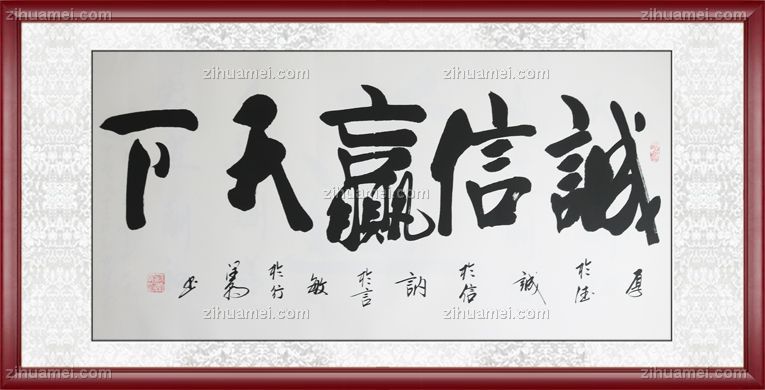 誠信贏天下
厚於德 誠於信 訥於言 敏於行
zihuamei.com
zihuamei.com
zihuamei.com
zihuamei.com
zihuamei.com
zihuamei.com
zihuamei.com
zihuamei.com
zihuamei.com
zihuamei.com
zihuamei.com